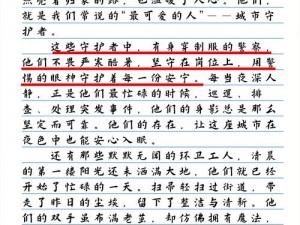 就是我们常说的“最可爱的人”——城市守
护者。
这些守护者中，有身穿制服的警察，
他们不畏严寒酷暑，坚守在岗位上，用警
惕的眼神守护着每一份安宁。每当夜深人
静，正是他们最忙碌的时候，巡逻、排
查、处理突发事件，他们的身影总是那么
坚定而可靠。他们的存在，让这座城市在
夜色中也能安心入眠。
还有那些默默无闻的环卫工人，清晨
的第一缕阳光还未洒满大地，他们就已经
开始了忙碌的一天。扫帚轻扫过街道，带
走了昨日的尘埃，留下了整洁与清新。他
们的双手虽布满老茧，却仿佛拥有魔法，